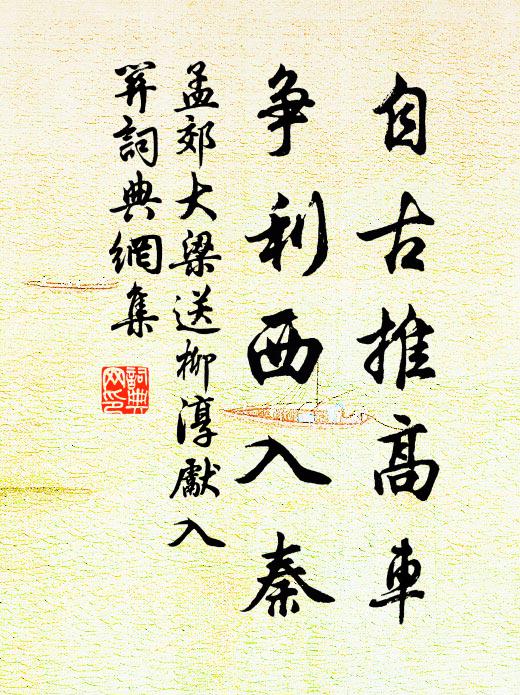 自古推高車
争利西入秦
孟郊大梁送柳淳獻入
詞典網集
詞典网印